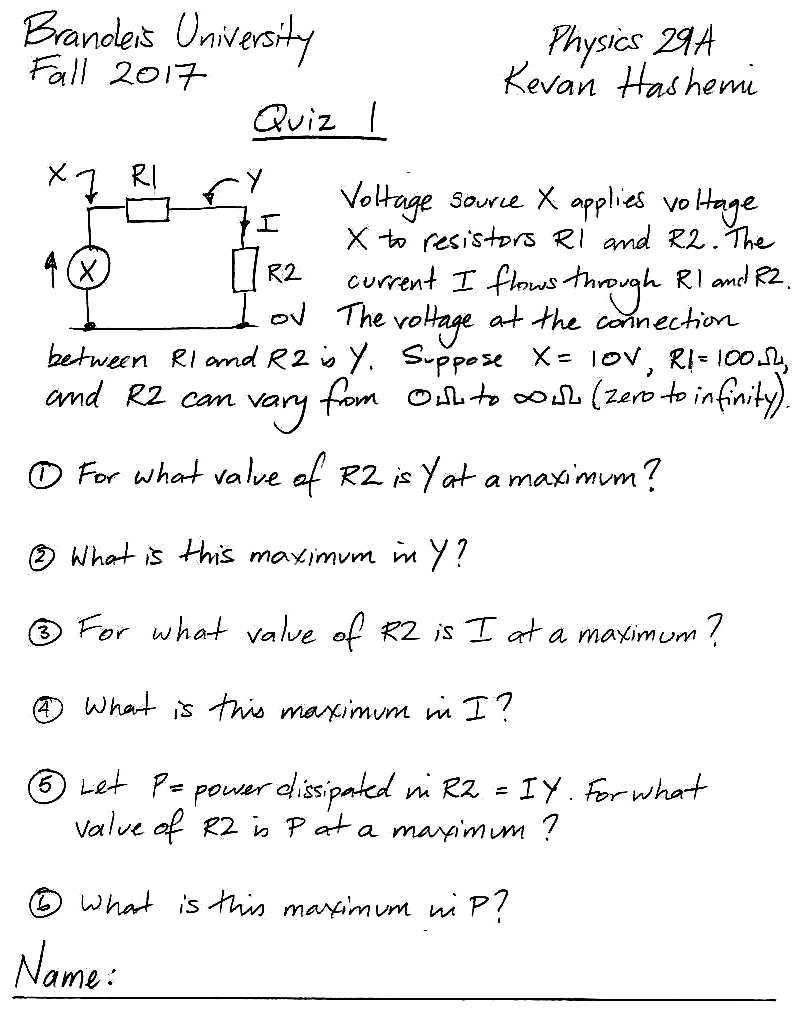 Brandeis University
Physics 29A
Fall 2017
Kevan Hashemi
Quiz 1
X
R1
Y
I
X
R2
0V
Voltage source X applies voltage
X to resistors R1 and R2. The
current I flows through R1 and R2.
The voltage at the connection
between R1 and R2 is Y. Suppose X = 10V, R1 = 100Ω,
and R2 can vary from 0Ω to ∞Ω (zero to infinity).
① For what value of R2 is Y at a maximum?
② What is this maximum in Y?
③ For what value of R2 is I at a maximum?
④ What is this maximum in I?
⑤ Let P = power dissipated in R2 = IY. For what
value of R2 is P at a maximum?
⑥ What is this maximum in P?
Name: